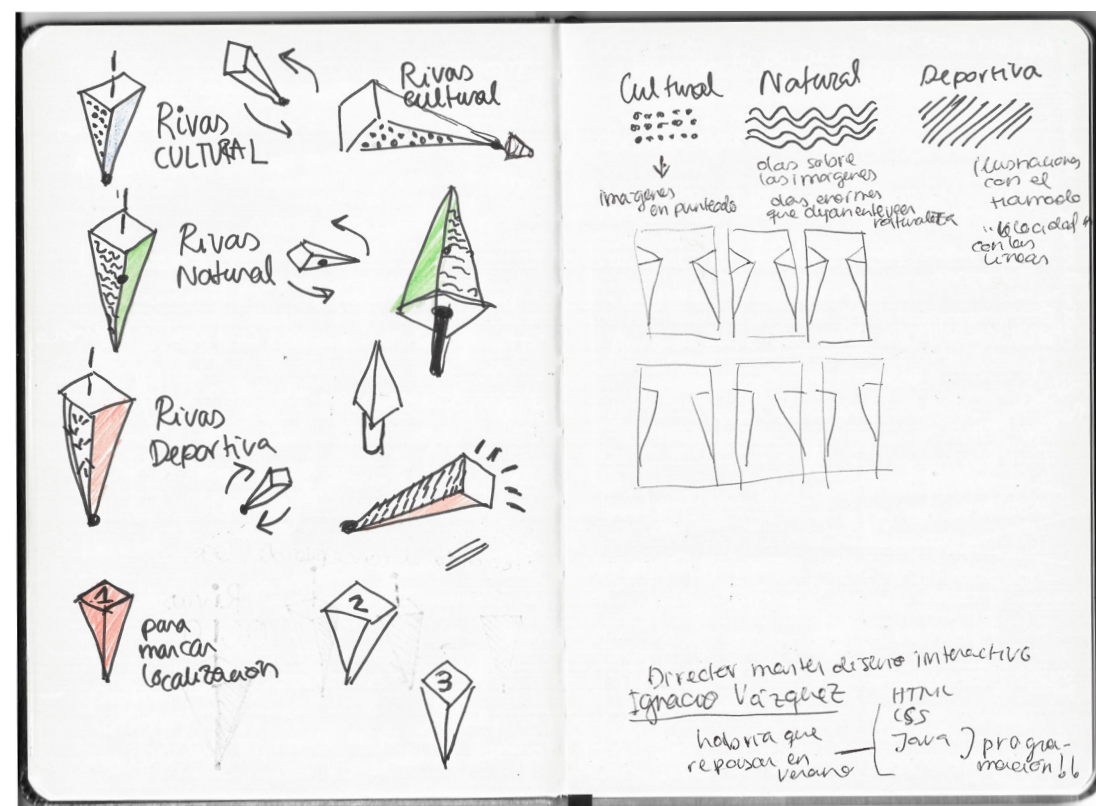 Rivas
CULTURAL
Rivas
cultural
Rivas
Natural
Rivas
Deportiva
1
para
marcar
localización
2
3
Cultural
imágenes
en punteado
Natural
olas sobre
las imágenes
olas enormes
que dejan entever
naturaleza
Deportiva
ilustraciones
con el
"velocidad"
con las
líneas
Director master diseño interactivo
Ignacio Vázquez
habría que
repasar en
verano
HTML
CSS
Java
progra-
mación!!